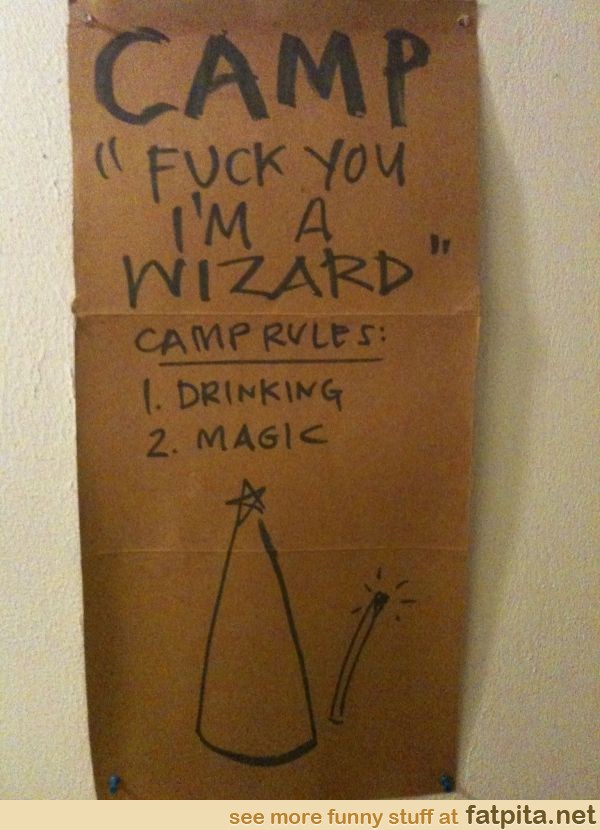 CAMP
" FUCK YOU
I'M A
WIZARD "
CAMP RULES:
1. DRINKING
2. MAGIC
see more funny stuff at fatpita.net